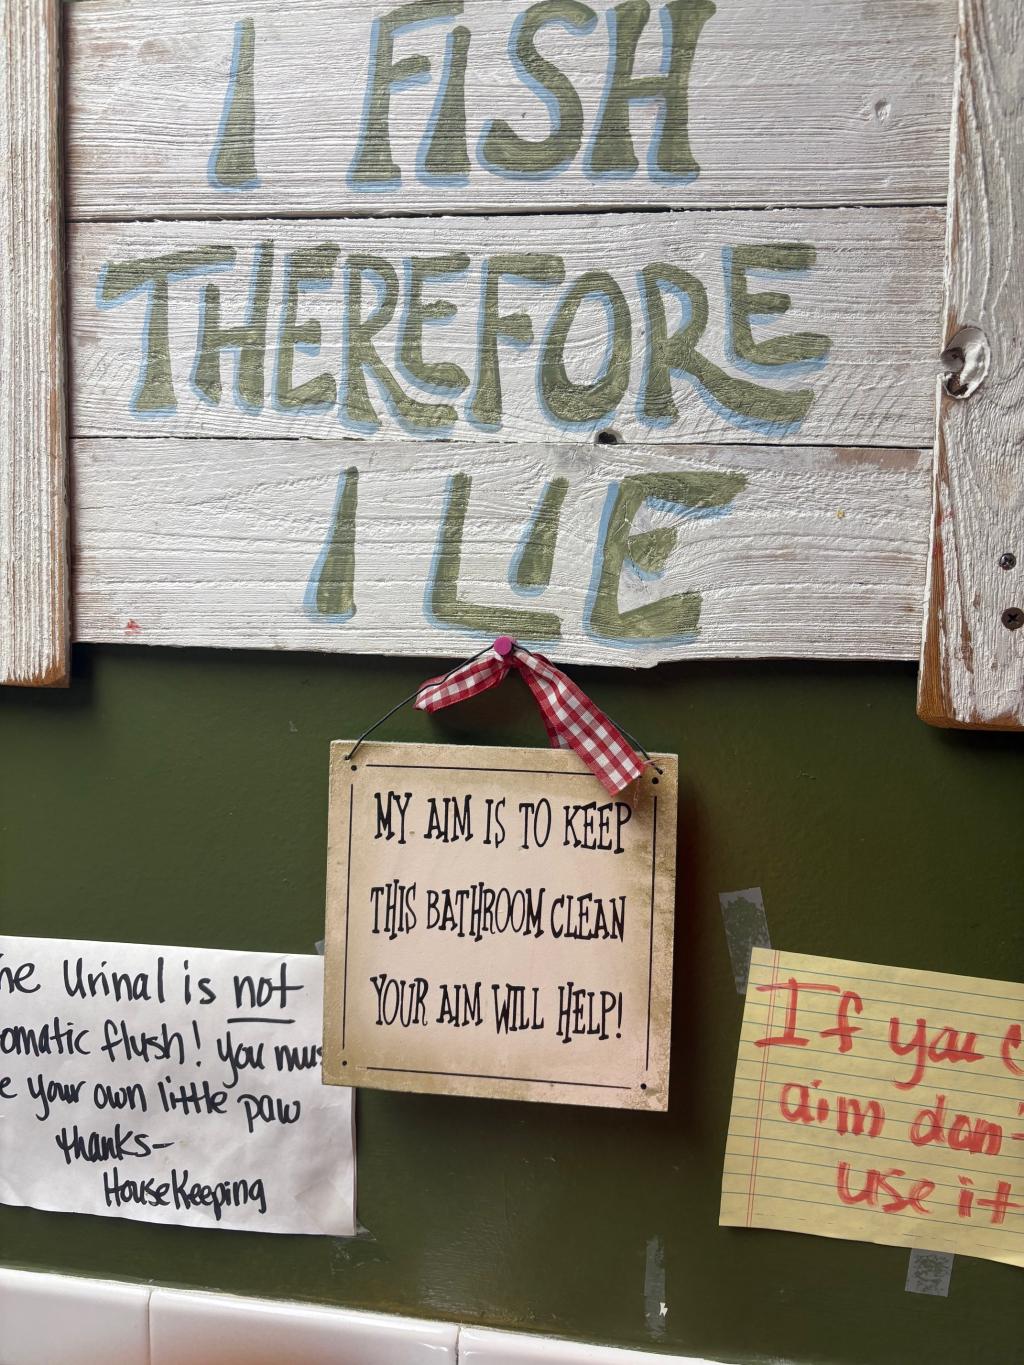 I FISH
THEREFORE
I LIE
MY AIM IS TO KEEP
THIS BATHROOM CLEAN
YOUR AIM WILL HELP!
he Urinal is not
omatic flush! you mus
e your own little paw
thanks-
HouseKeeping
If you c
aim don'
use it